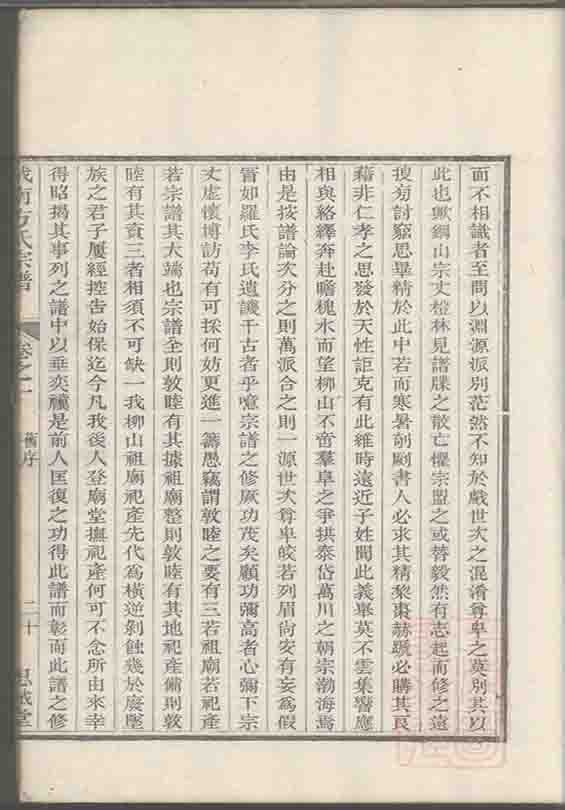 面不相識者至問以淵源派別茫然不知於戲世次之混淆尊卑之莫別其以
此也歟鋼山宗丈橙林見譜牒之散亡懼宗盟之或替毅然有志起而修之遠
搜旁討竄思畢精於此中若而寒暑剞劂書人必求其精黎棗赫蹏必購其良
藉非仁孝之思發於天性詎克有此維時遠近子姓聞此義舉莫不雲集響應
相與絡繹奔赴瞻槐木而望柳山不啻羣阜之爭拱泰岱萬川之朝宗渤海焉
由是按譜論次分之則萬派合之則一源世次尊卑皎若列眉尙安有妄為假
冒如羅氏李氏遺譏千古者乎噫宗譜之修厥功茂矣顧功彌高者心彌下宗
丈虛懷博訪苟有可採何妨更進一籌愚竊謂敦睦之要有三若祖廟若祀產
若宗譜其大端也宗譜全則敦睦有其據祖廟整則敦睦有其地祀產備則敦
睦有其資三者相須不可缺一我柳山祖廟祀產先代為橫逆剝蝕幾於廢墜
族之君子屢經控吿始保迄今凡我後人登廟堂撫祀產何可不念所由來幸
得昭揭其事列之譜中以垂奕禩是前人匡復之功得此譜而彰而此譜之修
方氏宗譜 卷之一 舊序 二十